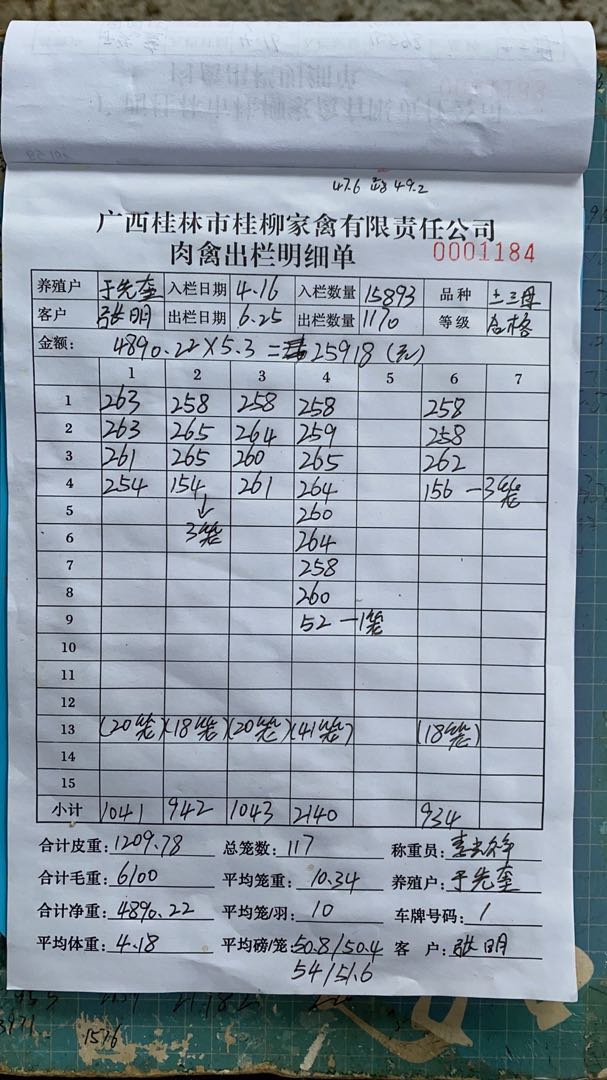 0001183
47.6 49.2
广西桂林市桂柳家禽有限责任公司
肉禽出栏明细单 0001184
养殖户 于先奎 入栏日期 4.16 入栏数量 15893 品种 土三母
客户 张明 出栏日期 6.25 出栏数量 1170 等级 合格
金额: 4890.22×5.3= 25918(元)
1 2 3 4 5 6 7
1 263 258 258 258 258
2 263 265 264 259 258
3 261 265 260 265 262
4 254 154 261 264 156 —3笼
5 ↓ 260
6 3笼 264
7 258
8 260
9 52 —1笼
10
11
12
13 (20笼) (18笼) (20笼) (41笼) (18笼)
14
15
小计 1041 942 1043 2140 934
合计皮重: 1209.78 总笼数: 117 称重员:
合计毛重: 6100 平均笼重: 10.34 养殖户: 于先奎
合计净重: 4890.22 平均笼/羽: 10 车牌号码: /
平均体重: 4.18 平均磅/笼: 50.8/50.4 客户: 张明
54/51.6
1576